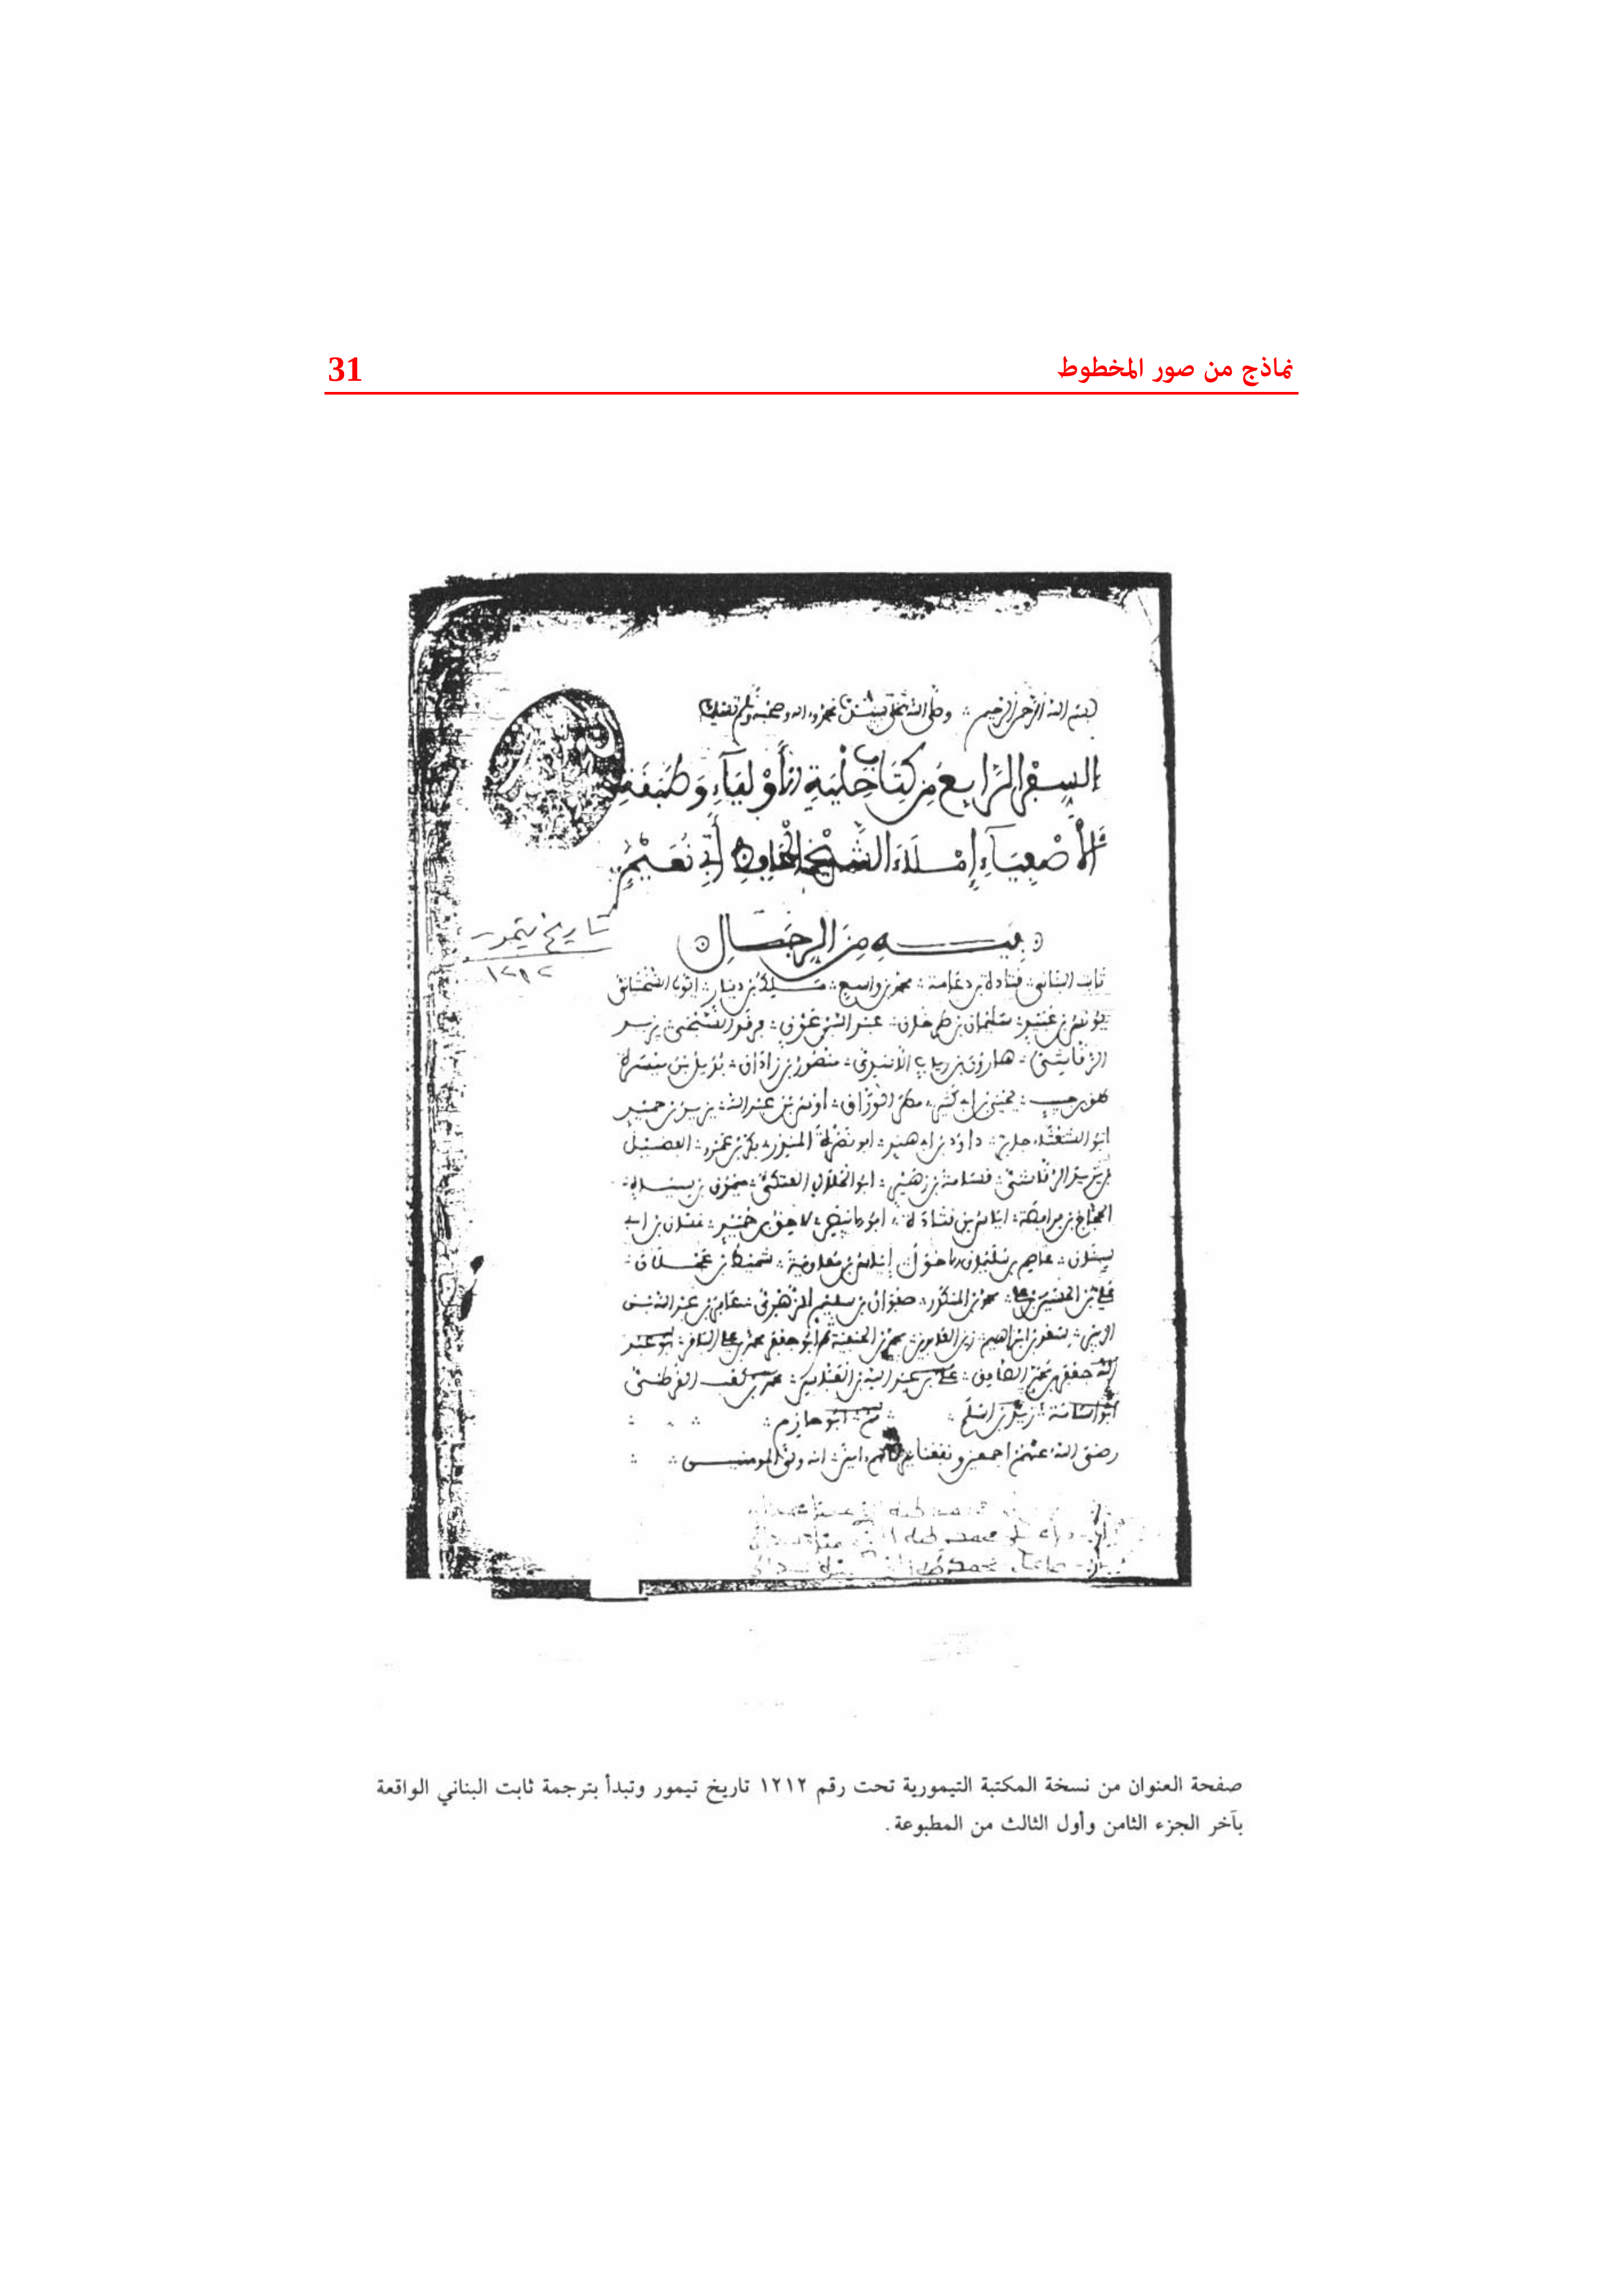 نماذج من صور المخطوط 31
بسم الله الرحمن الرحيم وصلى الله على سيدنا محمد واله وصحبه وسلم تسليما
السفر الرابع من كتاب حلية الأولياء وطبقة
الأصفياء إملاء الشيخ الحافظ أبي نعيم
فيه من الرجال
تاريخ تيمور
١٢١٢
ثابت البناني قتادة بن دعامة محمد بن واسع مالك بن دينار ايوب السختياني
يونس بن عبيد سليمان بن طرخان عبد الله بن عون فرقد السبخي يزيد
الرقاشي هارون بن رياب الأسيدي منصور بن زاذان بديل بن ميسرة
طلق بن حبيب يحيى بن ابي كثير مطر الوراق اوس بن عبد الله يزيد بن حميد
داود بن ابي هند ابو نضرة المنذر بكر بن عمرو الفضيل
بن يزيد الرقاشي قسامة بن زهير ابو الحلال العتكي ميمون بن سياه
الحجاج بن فرافصة اياس بن قتادة ابو لاحق بن حميد حسان بن ابي
سنان عاصم بن سليمان الاحول إياس بن معاوية شميط بن عجلان
علي بن الحسين محمد بن المنكدر صفوان بن سليم الزهري عامر بن عبد الله بن
الزبير سعد بن ابراهيم زين العابدين محمد بن الحنفية ابو جعفر محمد بن علي الباقر ابو عبد
الله جعفر بن محمد الصادق علي بن عبد الله بن العباس محمد بن كعب القرظي
ابو اسامة زيد بن اسلم ابو حازم
رضي الله عنهم اجمعين ونفعنا بهم امين انه ولي المومنين
صفحة العنوان من نسخة المكتبة التيمورية تحت رقم ١٢١٢ تاريخ تيمور وتبدأ بترجمة ثابت البناني الواقعة
بآخر الجزء الثامن وأول الثالث من المطبوعة.